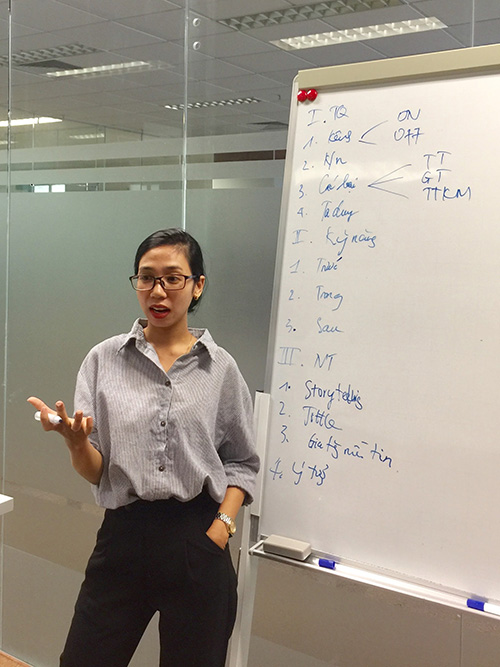 I. TQ
1. Kênh
ON
OFF
2. K/n
3. Các loại
TT
GT
TTKM
4. Tư duy
II. Kỹ năng
1. Trước
2. Trong
3. Sau
III. NT
1. Storytelling
2. Tittle
3. Gia tăng niềm tin
4. Ý tưở